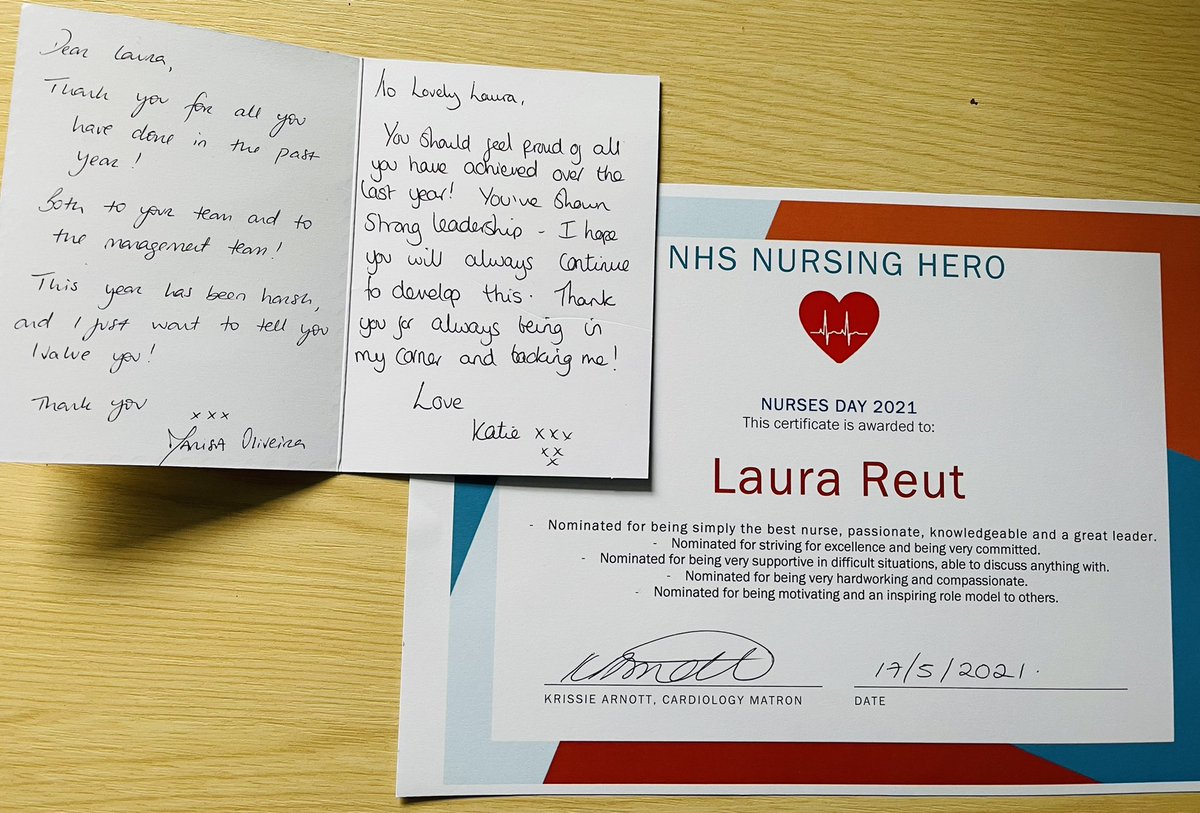 Dear Laura,
Thank you for all you
have done in the past
year!
Both to your team and to
the management team!
This year has been harsh,
and I just want to tell you
I value you!
Thank you
xxx
Marisa Oliveira
To Lovely Laura,
You should feel proud of all
you have achieved over the
last year! You've shown
Strong leadership - I hope
you will always continue
to develop this. Thank
you for always being in
my corner and backing me!
Love
Katie xxx
xx
x
NHS NURSING HERO
NURSES DAY 2021
This certificate is awarded to:
Laura Reut
- Nominated for being simply the best nurse, passionate, knowledgeable and a great leader.
- Nominated for striving for excellence and being very committed.
- Nominated for being very supportive in difficult situations, able to discuss anything with.
- Nominated for being very hardworking and compassionate.
- Nominated for being motivating and an inspiring role model to others.
KArnott
17/5/2021.
KRISSIE ARNOTT, CARDIOLOGY MATRON
DATE